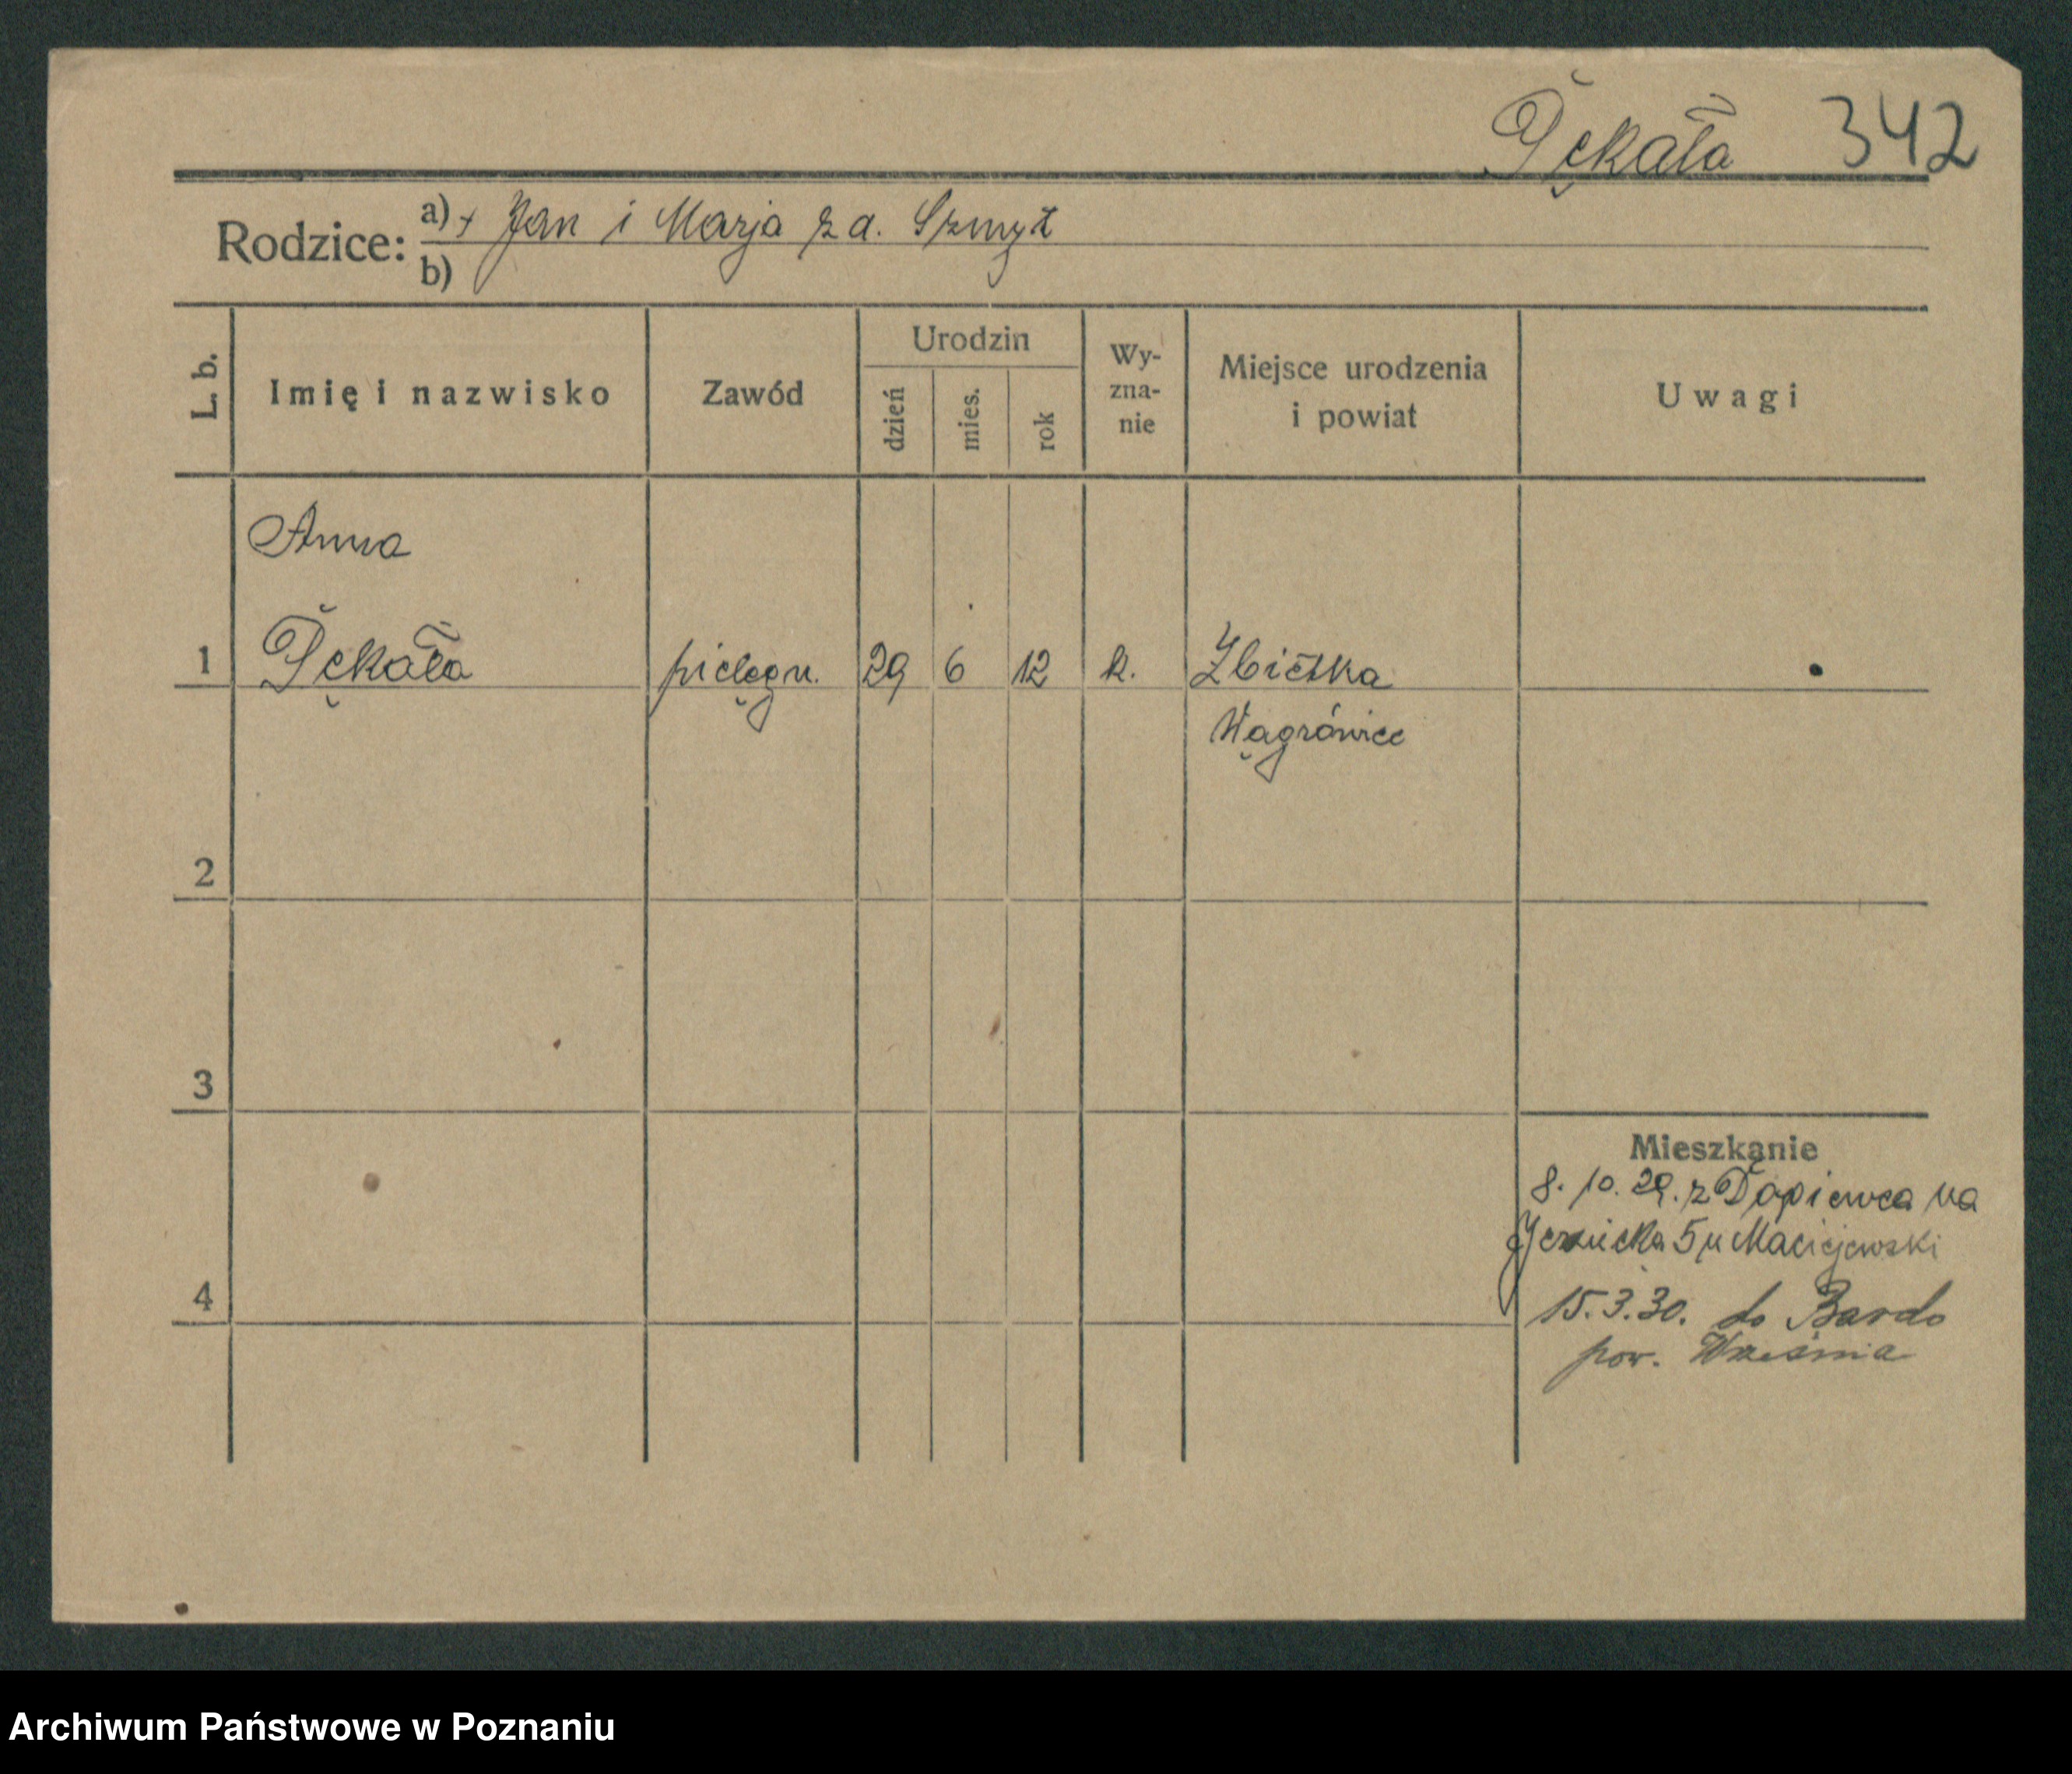 Pękała 342
Rodzice: a) + Jan i Marja z d. Szmyt
b)
L. b.
Imię i nazwisko
Zawód
Urodzin
dzień
mies.
rok
Wy-
zna-
nie
Miejsce urodzenia
i powiat
Uwagi
Anna
1 Pękała pielęgn. 29 6 12 k. Zbietka
Wągrówiec
2
3
Mieszkanie
8. 10. 29. z Dopiewca na
5 u Maciejewski
4 15.3.30. do Bardo
pow. Września
Archiwum Państwowe w Poznaniu